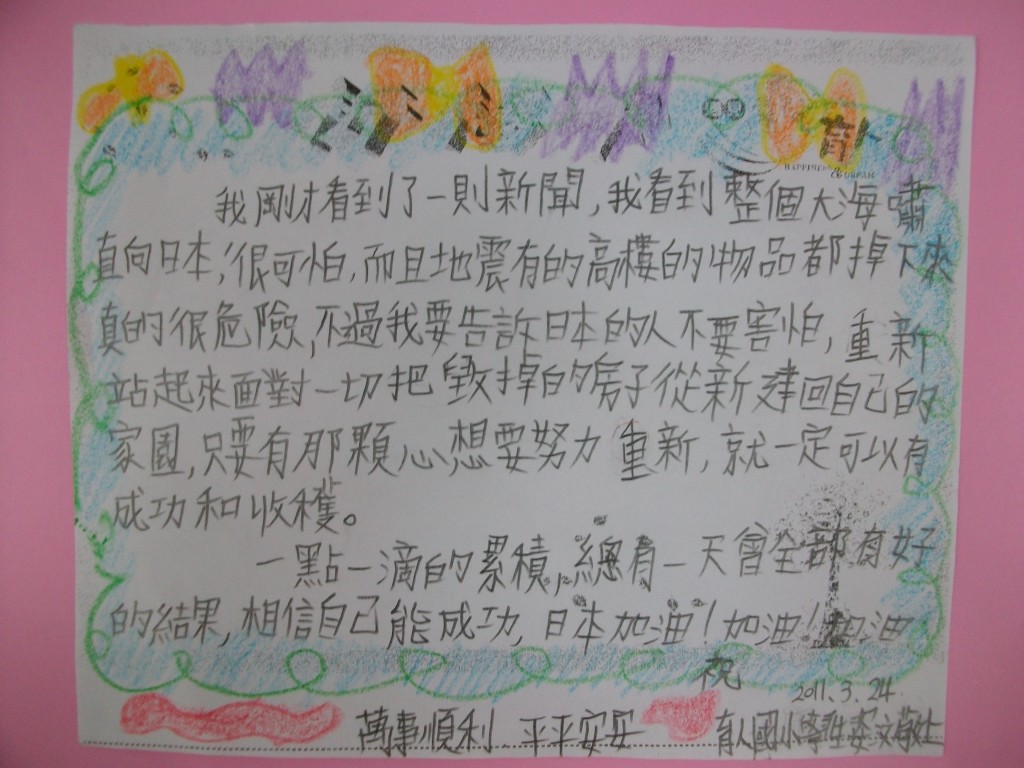 育人
HAPPINESS
我剛才看到了一則新聞,我看到整個大海嘯
直向日本,很可怕,而且地震有的高樓的物品都掉下來
真的很危險,不過我要告訴日本的人不要害怕,重新
站起來面對一切把毀掉的房子從新建回自己的
家園,只要有那顆心想要努力重新,就一定可以有
成功和收穫。
一點一滴的累積,總有一天會全部有好
的結果,相信自己能成功,日本加油!加油!加油
祝
2011.3.24.
萬事順利 平平安安 育人國小學生 文敬上